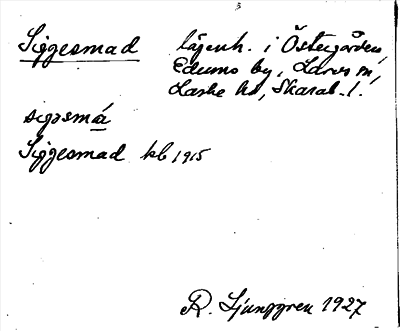 Siggesmad lägenh. i Östergården,
Edums by, Larvs sn,
Laske hd, Skarab. l.
sigəsmá
Siggesmad kb 1915
R. Ljunggren 1927